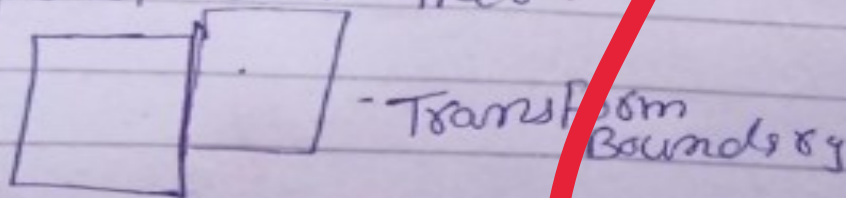 - Transform
Boundary